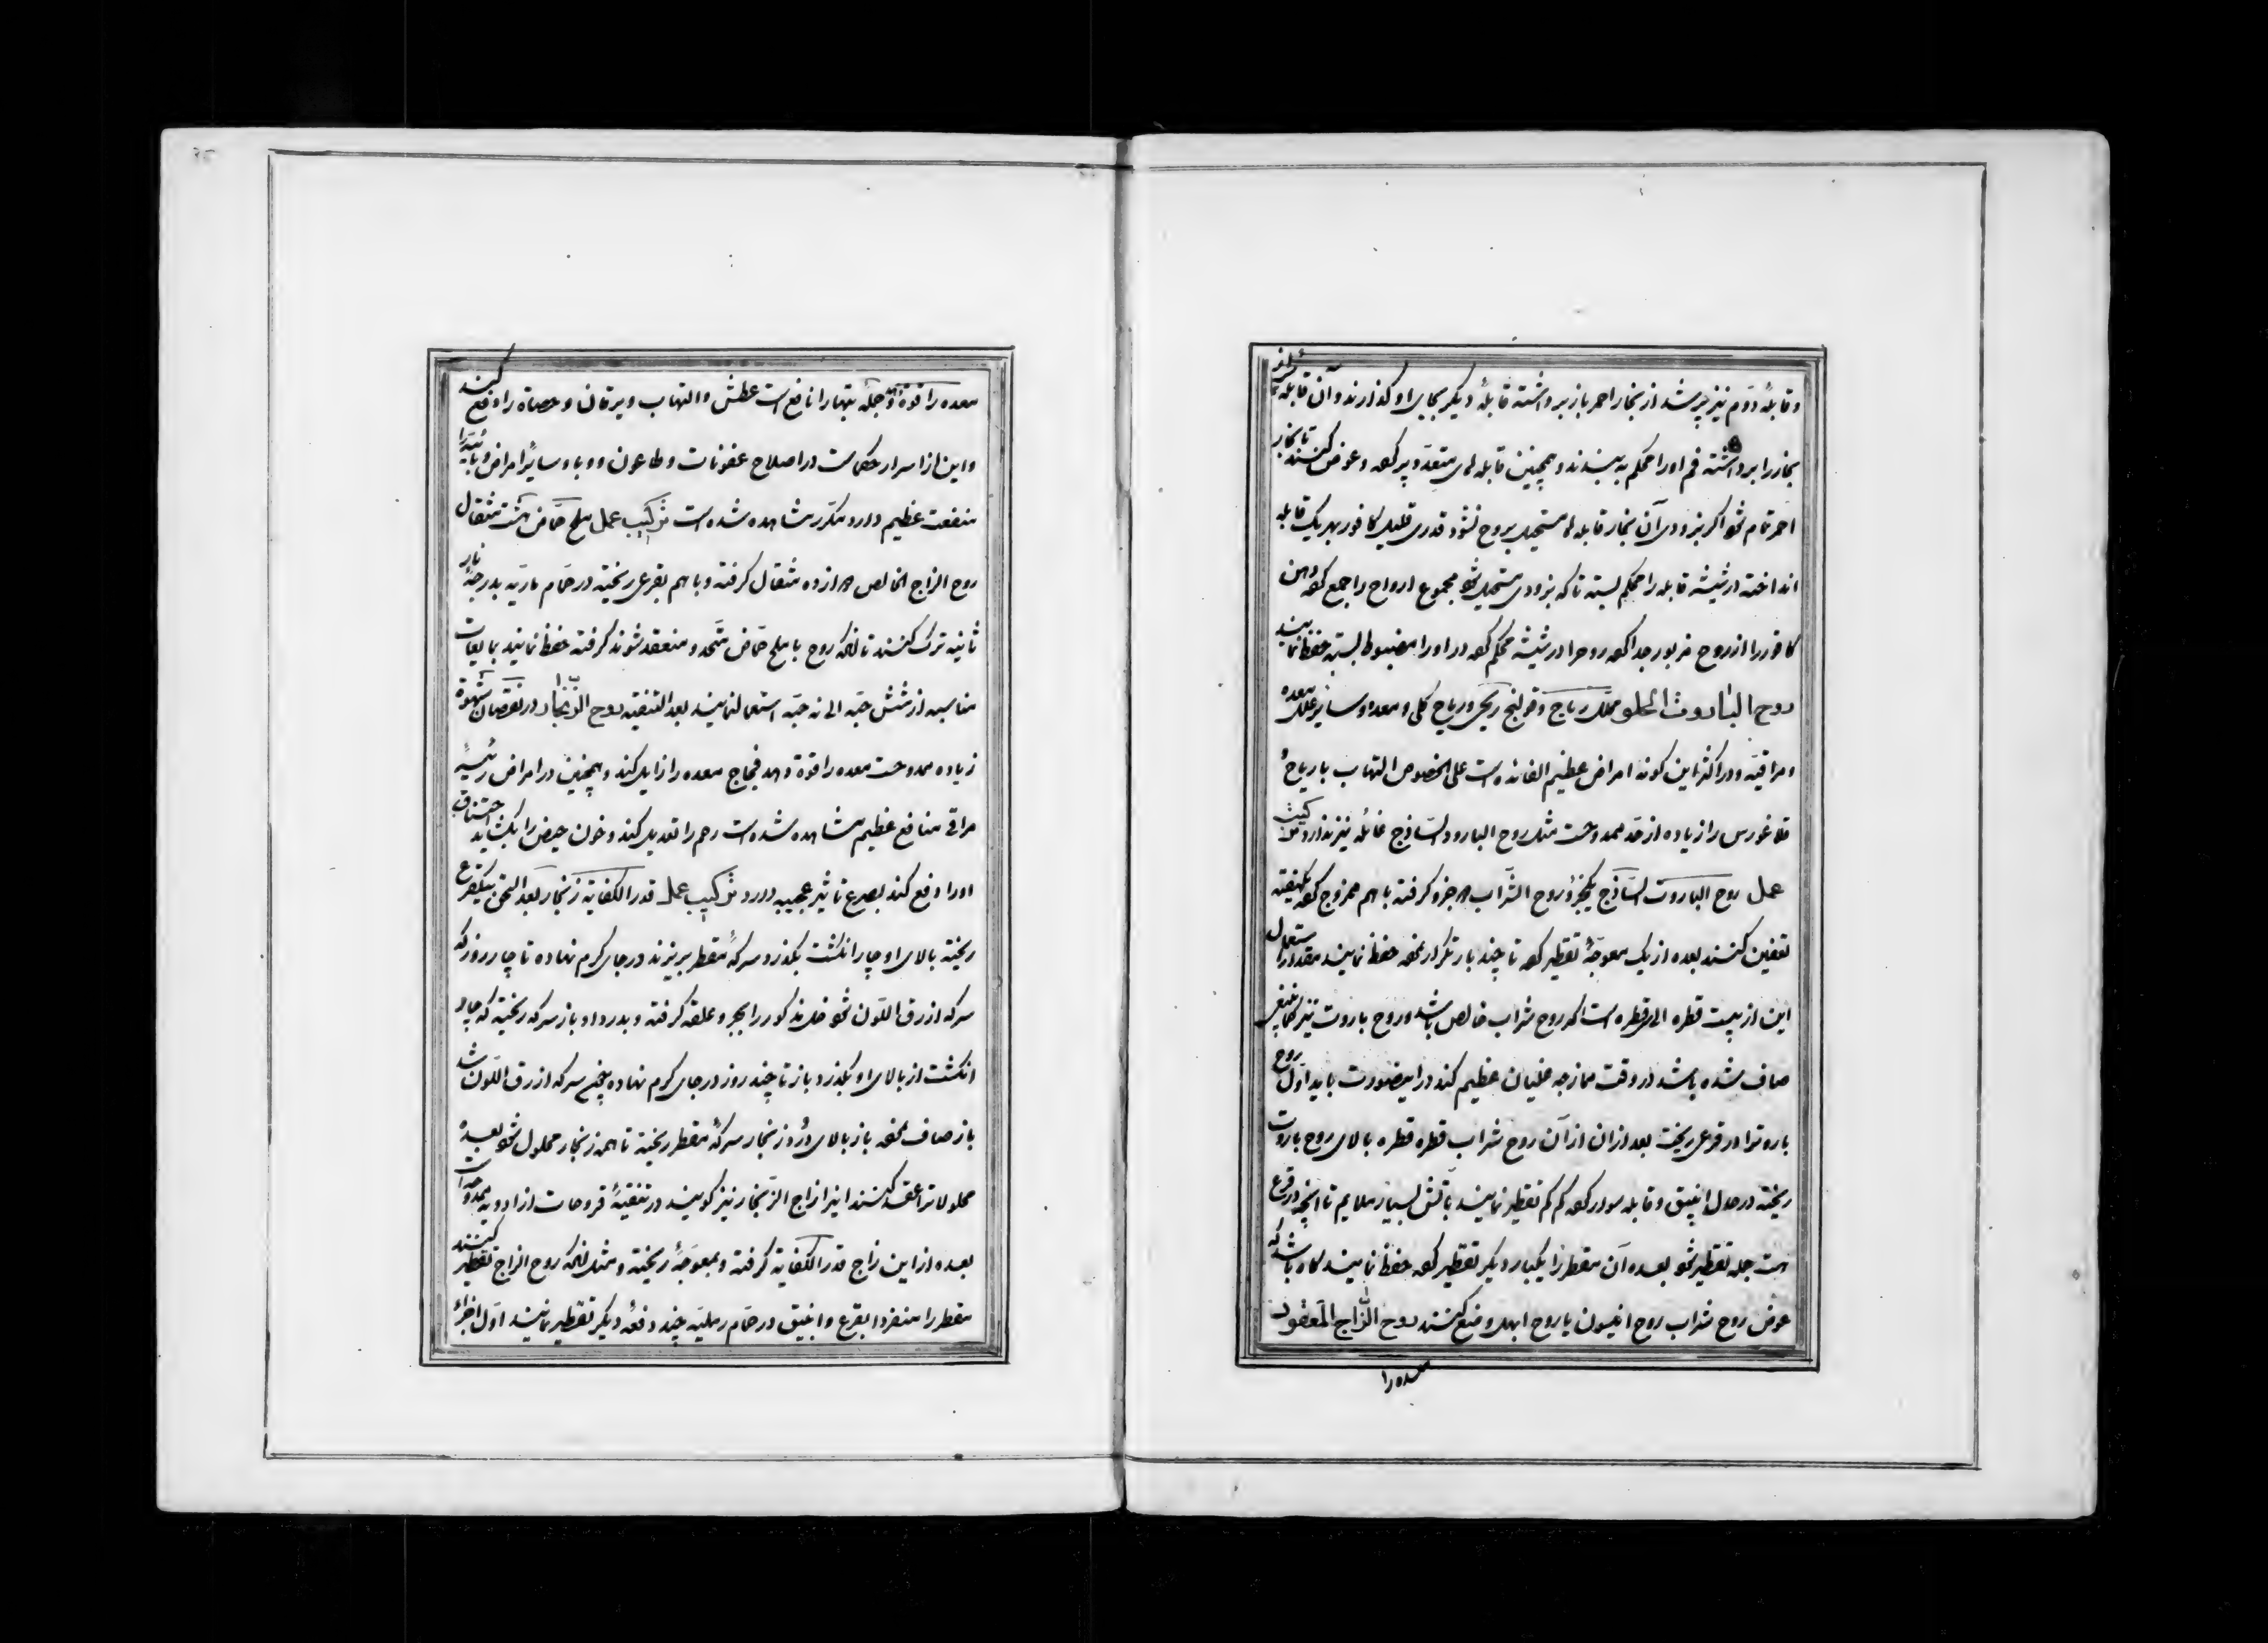 وقابلهٔ دوّم نیز پر شد از بخار احمر باز برداشته قابلهٔ دیگر بجای او گذارند و آن قابله
بخار را برداشته فم اورا محکم به بندند و همچنین قابله های متعدّد پر کرده و عوض کنند تا بخار
احمر تمام شود اگر بزودی آن بخار قابله ها مستحیل بروح نشود قدری قلیل کافور بهر یک قابله
انداخته در شیشه قابله را محکم بسته تا که بزودی مستحیل شود مجموع ارواح را جمع کرده دهن
کافور را از روح مزبور جدا کرده روح را در شیشه محکم کرده در اورا مضبوط بسته حفظ نمایند
روح البارُوت الحلو محلّل ریاح و قولنج ریحی و ریاح کلی و معده و سایر علل معده
و مراقیّه و در اکثر این کونه امراض عظیم الفائده است علی الخصوص التهاب با ریاح
قلاغورس را زیاده از حد ممدوحست مثل روح البارود السّاذج غائله نیز ندارد ترکیب
عمل روح الباروت السّاذج یکجزؤ روح الشّراب جزو گرفته باهم ممزوج کرده یکهفته
تعفین کنند بعده از یک معوجّهٔ تقطیر کرده تا چند بار تکرار نموده حفظ نمایند مقدار استعمال
این از بیست قطره الی قطره است اگر روح شراب خالص باشد و روح باروت نیز کماینبغی
صاف شده باشد در وقت ممازجه غلیان عظیم کند در اینصورت باید اوّل روح
باروترا در قرعی ریخت بعد ازان از آن روح شراب قطره قطره بالای روح باروت
ریخته در حال انبیق و قابله سوار کرده کم کم تقطیر نمایند بآتش بسیار ملایم تا آنچه در قرع
هست جمله تقطیر شود بعده آن مقطر را یکبار دیگر تقطیر کرده حفظ نمایند گاه باشد که
عوض روح شراب روح انیسون یا روح ابهل وضع کنند روح الزّاج المعقود
معده را
معده را قوة دهد جمله تبهارا نافع است عطش و التهاب و یرقان و حصاة را دفع کنند
و این از اسرار حکماست در اصلاح عفونات و طاعون و وبا و سایر امراض وبائیه را
منفعت عظیم دارد مکرّر مشاهده شده است ترکیب عمل ملح حمّاض هشت مثقال
روح الزاج الخالص از ده مثقال گرفته و باهم بقرعی ریخته در حمّام ماریّه بدرجهٔ نار
ثانیه ترک کنند تا آنکه روح با ملح حمّاض متّحد و منعقد شوند گرفته حفظ نمایند بمایعات
مناسبه از شش حبّه الی نه حبّه استعمال نمایند بعد التنقیه روح الزّنجار در نقصان شهوة
زیاده ممدوحست معده را قوة دهد فجاج معده را زایل کند و همچنین در امراض رئیسهٔ
مراقی منافع عظیم مشاهده شده است رحم را تعدیل کند و خون حیض را بگشاید اختناق
اورا دفع کند بصرع تاثیر عجیبه دارد ترکیب عمل قدر الکفایة زنجار بعد السّحق بیکقرع
ریخته بالای او چار انگشت بگذرد سرکهٔ مقطر بریزند در جای گرم نهاده تا چار روز که
سرکه ازرق اللّون شود خل مذکور را بجر و علقه گرفته و بدر داد و باز سرکه ریخته که چار
انگشت از بالای او بگذرد و باز تا چند روز در جای گرم نهاده سرکه ازرق اللّون شد
باز صاف نموده باز بالای دُرد زنجار سرکهٔ مقطر ریخته تا همه زنجار محلول شود بعده
محلولاترا عقد کنند اینرا زاج الزّنجار نیز گویند در تنقیهٔ قروحات از ادویه ممدوحه است
بعده از این زاج قدر الکفایة گرفته و بمعوجّهٔ ریخته و مثل آنکه روح الزاج تقطیر کنند
مقطر را منفردا بقرع و انبیق در حمّام رملیّه چند دفعهٔ دیگر تقطیر نمایند اوّل اجزاء